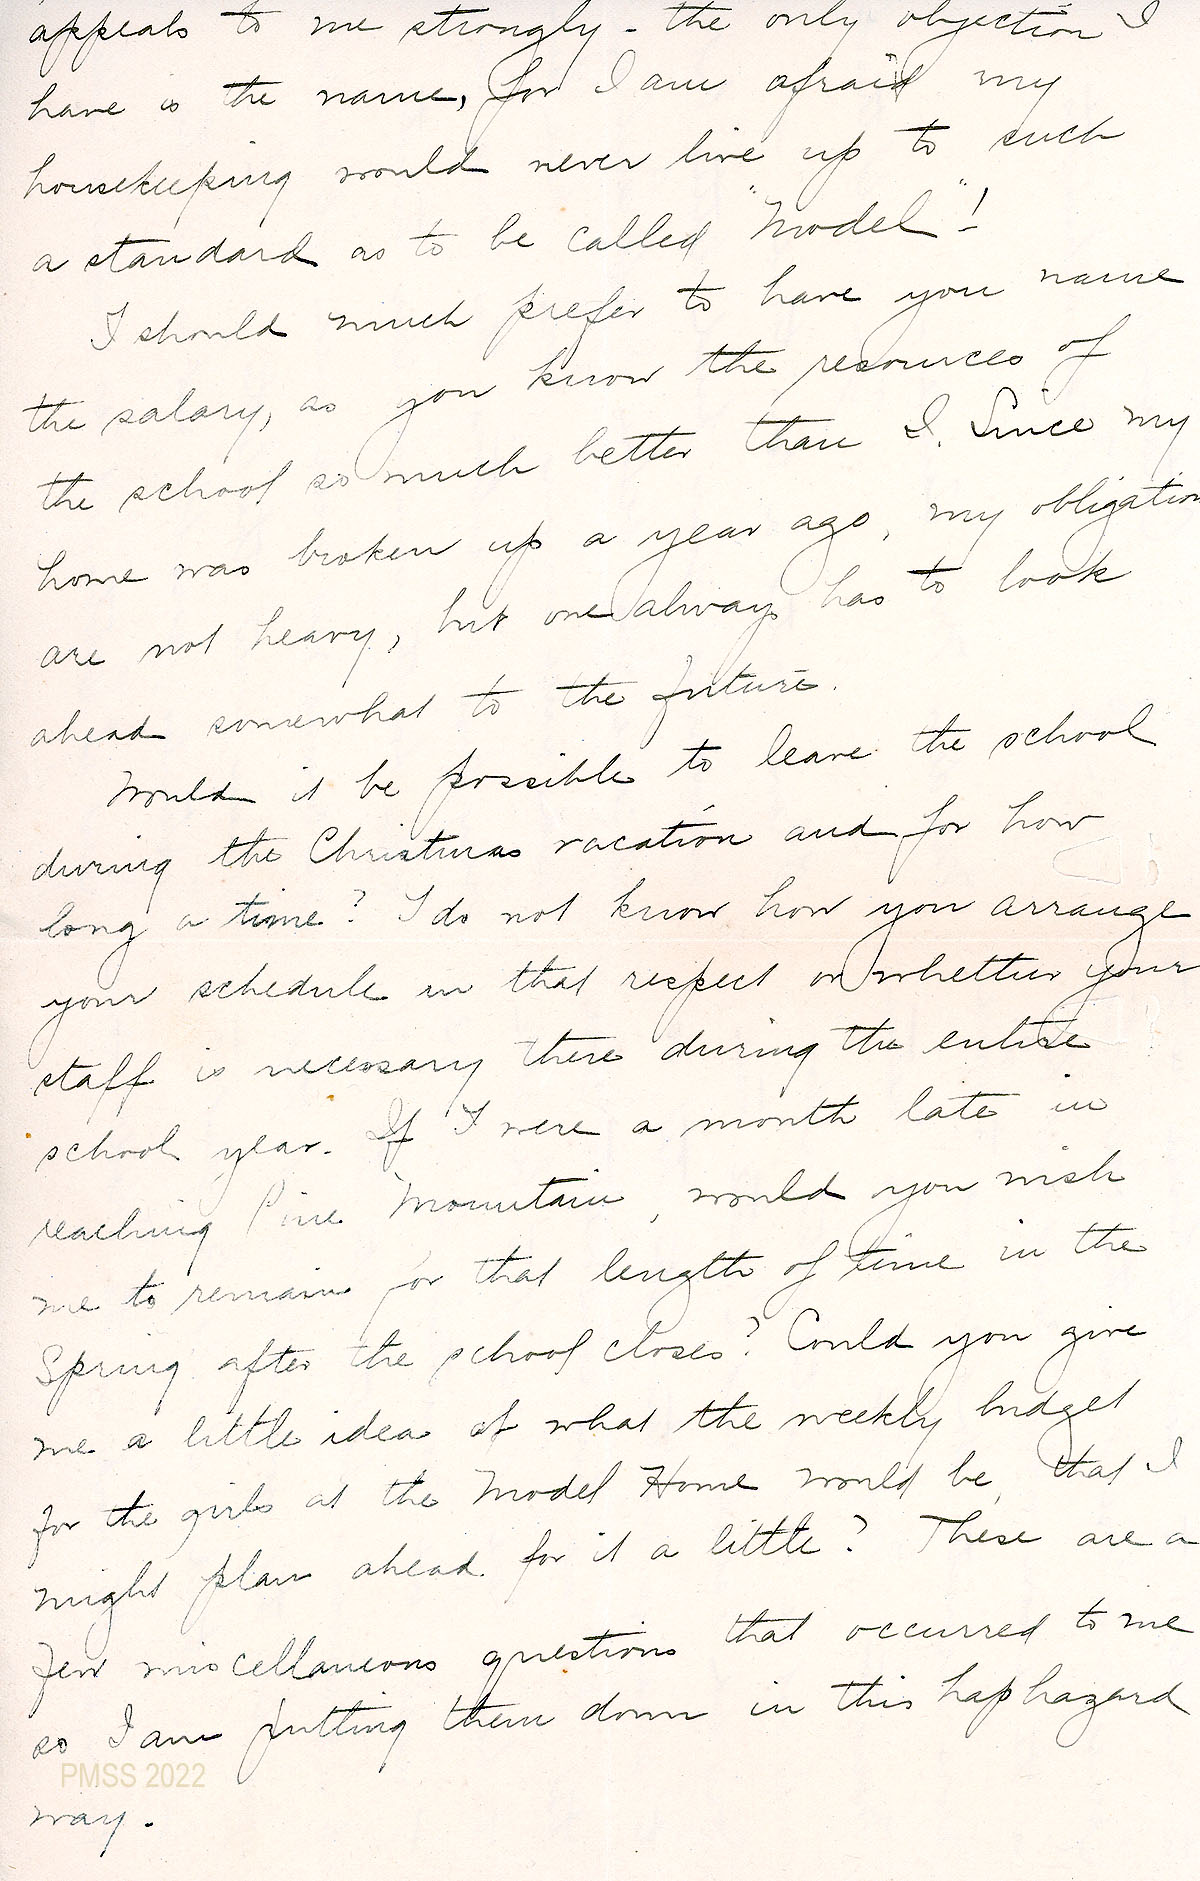 appeals to me strongly - the only objection I
have is the name, for I am afraid my
housekeeping would never live up to such
a standard as to be called "Model"!
I should much prefer to have you name
the salary, as you know the resources of
the school so much better than I. Since my
home was broken up a year ago, my obligation
are not heavy, but one always has to look
ahead somewhat to the future.
Would it be possible to leave the school
during the Christmas vacation and for how
long a time? I do not know how you arrange
your schedule in that respect or whether your
staff is necessary there during the entire
school year. If I were a month late in
reaching Pine Mountain, would you wish
me to remain for that length of time in the
Spring after the school closes? Could you give
me a little idea of what the weekly budget
for the girls at the Model Home would be, that I
might plan ahead for it a little? These are a
few miscellaneous questions that occurred to me
so I am putting them down in this haphazard
PMSS 2022
way.